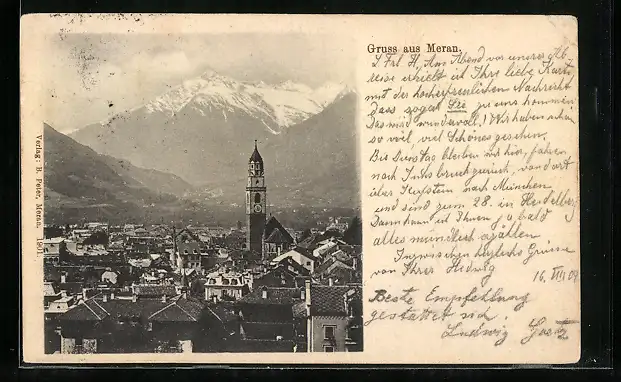 Gruss aus Meran.
L. Frl. H. Am Abend vor unserer Ab-
reise erhielt ich Ihre liebe Karte
mit der hocherfreulichen Nachricht
dass sogar Sie zu uns kommen
das wird wundervoll! Wir haben schon
so viel, viel Schönes gesehen.
Bis Dienstag bleiben wir hier, fahren
nach Innsbruck zurück, von dort
über Kufstein nach München
und sind zum 28. in Heidelberg
Dann kann ich Ihnen ja bald
alles mündlich erzählen
Inzwischen herzliche Grüsse
von Ihrer Hedwig
16. VIII 09
Beste Empfehlung
gestattet sich
Ludwig
Verlag: B. Peter, Meran. 1901.